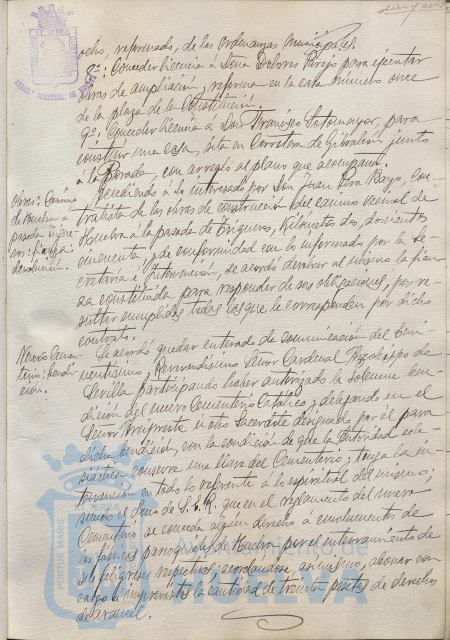 ocho, reformado, de las ordenanzas municipales.
8º: Conceder licencia a Dona Dolores Parejo para ejecutar
obras de ampliación y reforma en la casa numero once
de la plaza de la Constitución.
9º: Conceder licencia á Don Francisco Sotomayor, para
construir una casa, sita en Carretera de Gibraleón junto
á la Parada, con arreglo al plano que acompaña.
Accediendo á lo interesado por Don Juan Bayo, con-
tratista de las obras de construcción del camino vecinal de
Huelva a la pasada de Trigueros, Kilometros dos, doscientos
cincuenta y de conformidad con lo informado por la Se
cretaría é Intervención, se acordó devolver al mismo la fian-
za constituida para responder de sus obligaciones, por re-
sultar cumplidas todas las que le corresponden por dicho
contrato.
Se acordó quedar enterado de comunicación del Emi-
nentísimo y Reverendísimo Señor Cardenal Arzobispo de
Sevilla participando haber autorizado la solemne ben-
dicion del nuevo Cementerio Católico y delegando en el
Señor Arcipreste u otro Sacerdote designado por él para
dicha bendición, con la condición de que la Autoridad ecle-
siástica conserve una llave del Cementerio y tenga la in-
tervención en todo lo referente á lo espiritual del mismo;
siendo el deseo de S. E. R. que en el reglamento del nuevo
Cementerio se conceda algun derecho á emolumentos de
las fábricas parroquiales de Huelva por el enterramiento de
sus feligreses respectivos; acordándose, asi mismo, abonar con
cargo á imprevistos la cantidad de treinta pesetas de derechos
de arancel.
Obras: Camino
de Huelva a
pasada Trigue-
ros: fianza
devolución.
Nuevo Cemen-
terio: bendi-
ción.
Ayuntamiento de
HUELVA
PORTUS MARIS